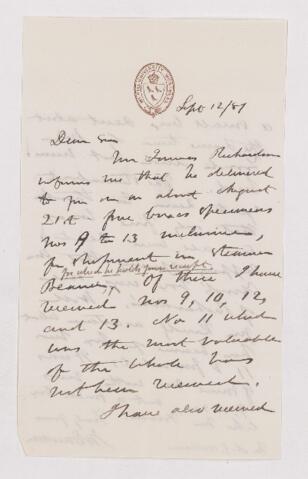 Sept 12/87
Dear Sir
Mr James Richardson
informs me that he delivered
to you on or about August
21st five boxes specimens
nos 9 to 13 inclusive,
for shipment in steamer
for which he holds your receipt.
Beaver, Of these I have
received Nos 9, 10, 12,
and 13. No 11 which
was the most valuable
of the whole has
not been received.
I have also received